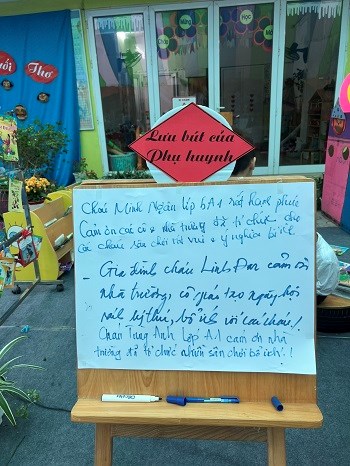 Tuổi
Thơ
Mừng
Học
Lưu bút của
Phụ huynh
Cháu Minh Ngân lớp 5A1 rất hạnh phúc
Cảm ơn các cô & nhà trường đã tổ chức cho
các cháu sân chơi rất vui & ý nghĩa bổ ích
- Gia đình cháu Linh Đan cảm ơn
nhà trường, cô giáo tạo ngày hội
rất lý thú, bổ ích với các cháu!
Cháu Trung Anh Lớp A1 cảm ơn nhà
trường đã tổ chức nhiều sân chơi bổ ích!